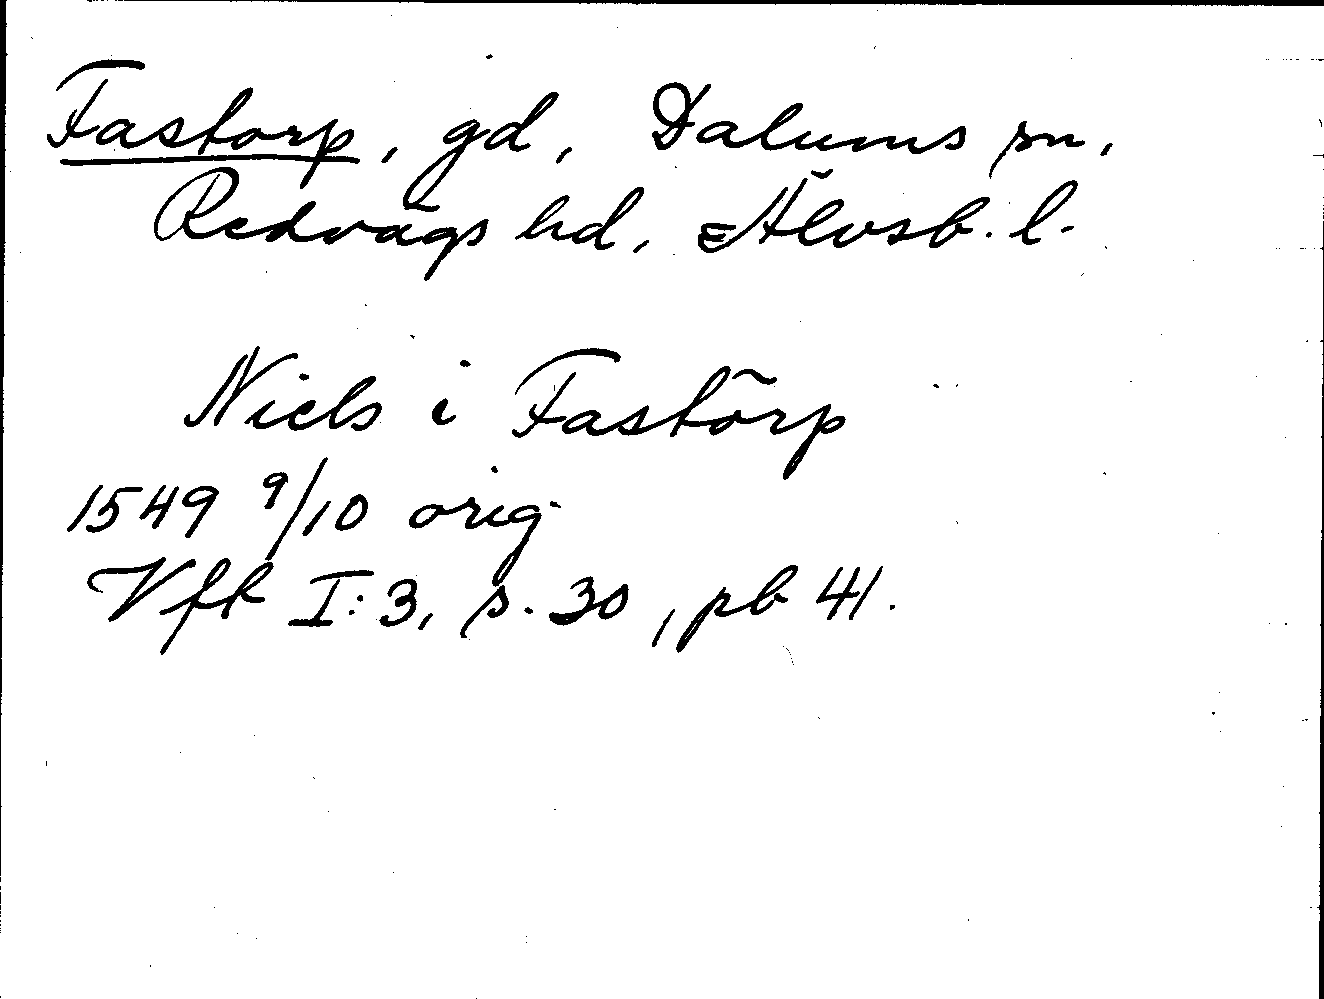 Fastorp, gd, Dalums sn,
Redvägs hd, Älvsb. l.
Niels i Fastörp
1549 9/10 orig
Vfr I:3, s. 30, pb 41.